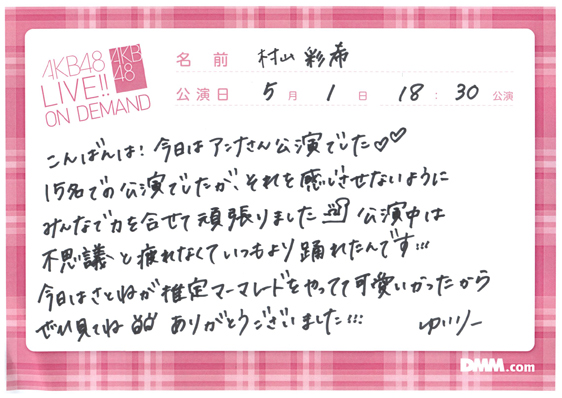 AKB48
LIVE!!
ON DEMAND
AKB
48
名前 村山彩希
公演日 5月1日 18:30公演
こんばんは!今日はアンナさん公演でした♡♡
15名での公演でしたが、それを感じさせないように
みんなで力を合せて頑張りました 公演中は
不思議と疲れなくていつもより踊れたんです…
今日はさとねが推定マーマレードをやってて可愛いかったから
ぜひ見てね ありがとうございました… ゆいりー
DMM.com